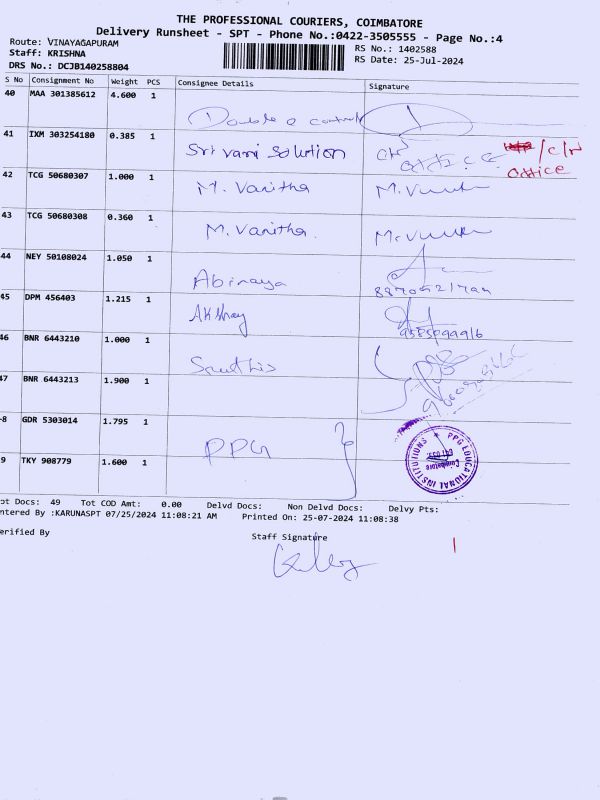 THE PROFESSIONAL COURIERS, COIMBATORE
Delivery Runsheet - SPT - Phone No.:0422-3505555 - Page No.:4
Route: VINAYAGAPURAM
RS No.: 1402588
Staff: KRISHNA
RS Date: 25-Jul-2024
DRS No.: DCJB140258804
S No Consignment No Weight PCS Consignee Details Signature
40 MAA 301385612 4.600 1
Double o control
41 IXM 303254180 0.385 1
Sri vari Solution
/C/N
office
42 TCG 50680307 1.000 1
M. Vanitha
43 TCG 50680308 0.360 1
M. Vanitha.
44 NEY 50108024 1.050 1
Abinaya
45 DPM 456403 1.215 1
Akshay
46 BNR 6443210 1.000 1
47 BNR 6443213 1.900 1
-8 GDR 5303014 1.795 1
PPG
PPG EDUCATIONAL INSTITUTIONS
Coimbatore
9 TKY 908779 1.600 1
ot Docs: 49 Tot COD Amt: 0.00 Delvd Docs: Non Delvd Docs: Delvy Pts:
ntered By :KARUNASPT 07/25/2024 11:08:21 AM Printed On: 25-07-2024 11:08:38
erified By
Staff Signature